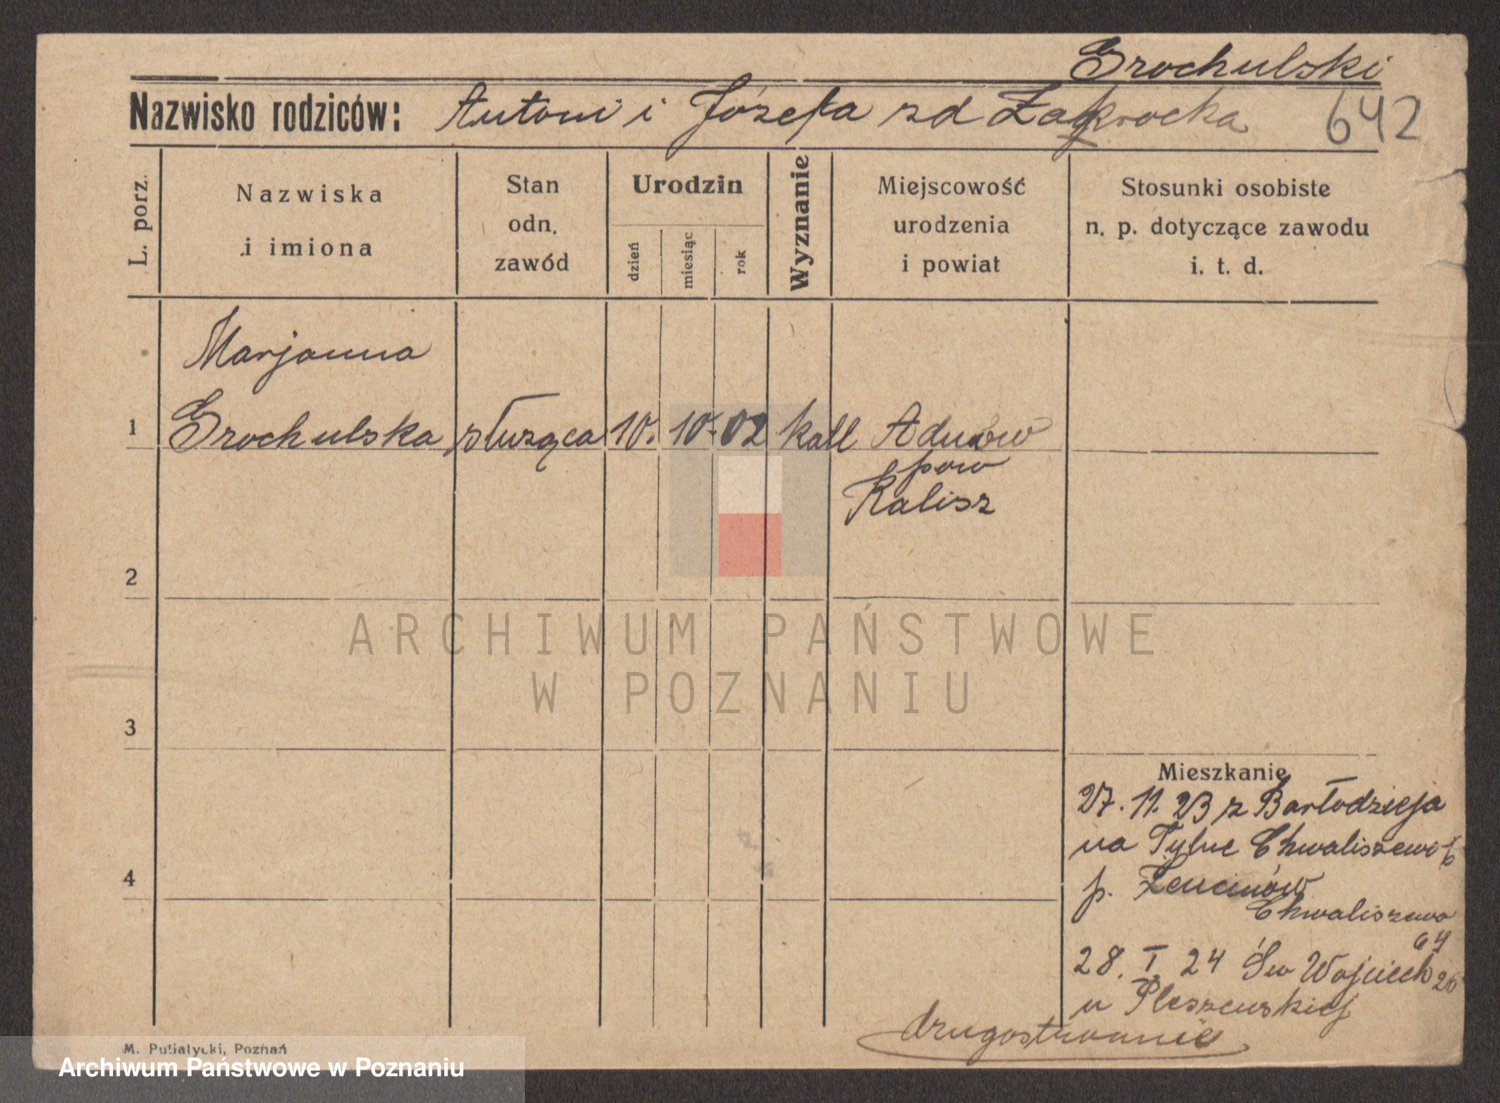 Grochulski
Nazwisko rodziców: Antoni i Józefa zd Zakrocka 642
L. porz.
Nazwiska
i imiona
Stan
odn.
zawód
Urodzin
dzień
miesiąc
rok
Wyznanie
Miejscowość
urodzenia
i powiat
Stosunki osobiste
n. p. dotyczące zawodu
i. t. d.
Marjanna
1 Grochulska służąca 10. 10. 02 katl
pow
Kalisz
2
ARCHIWUM PAŃSTWOWE
W POZNANIU
3
Mieszkanie
27. 11. 23 z Bartodzieja
na Tylne Chwaliszewo 6
p.
Chwaliszewo
64
28. I. 24 Św Wojciech 26
u Pleszewskiej
drugostronnie
M. Putiatycki, Poznań
Archiwum Państwowe w Poznaniu